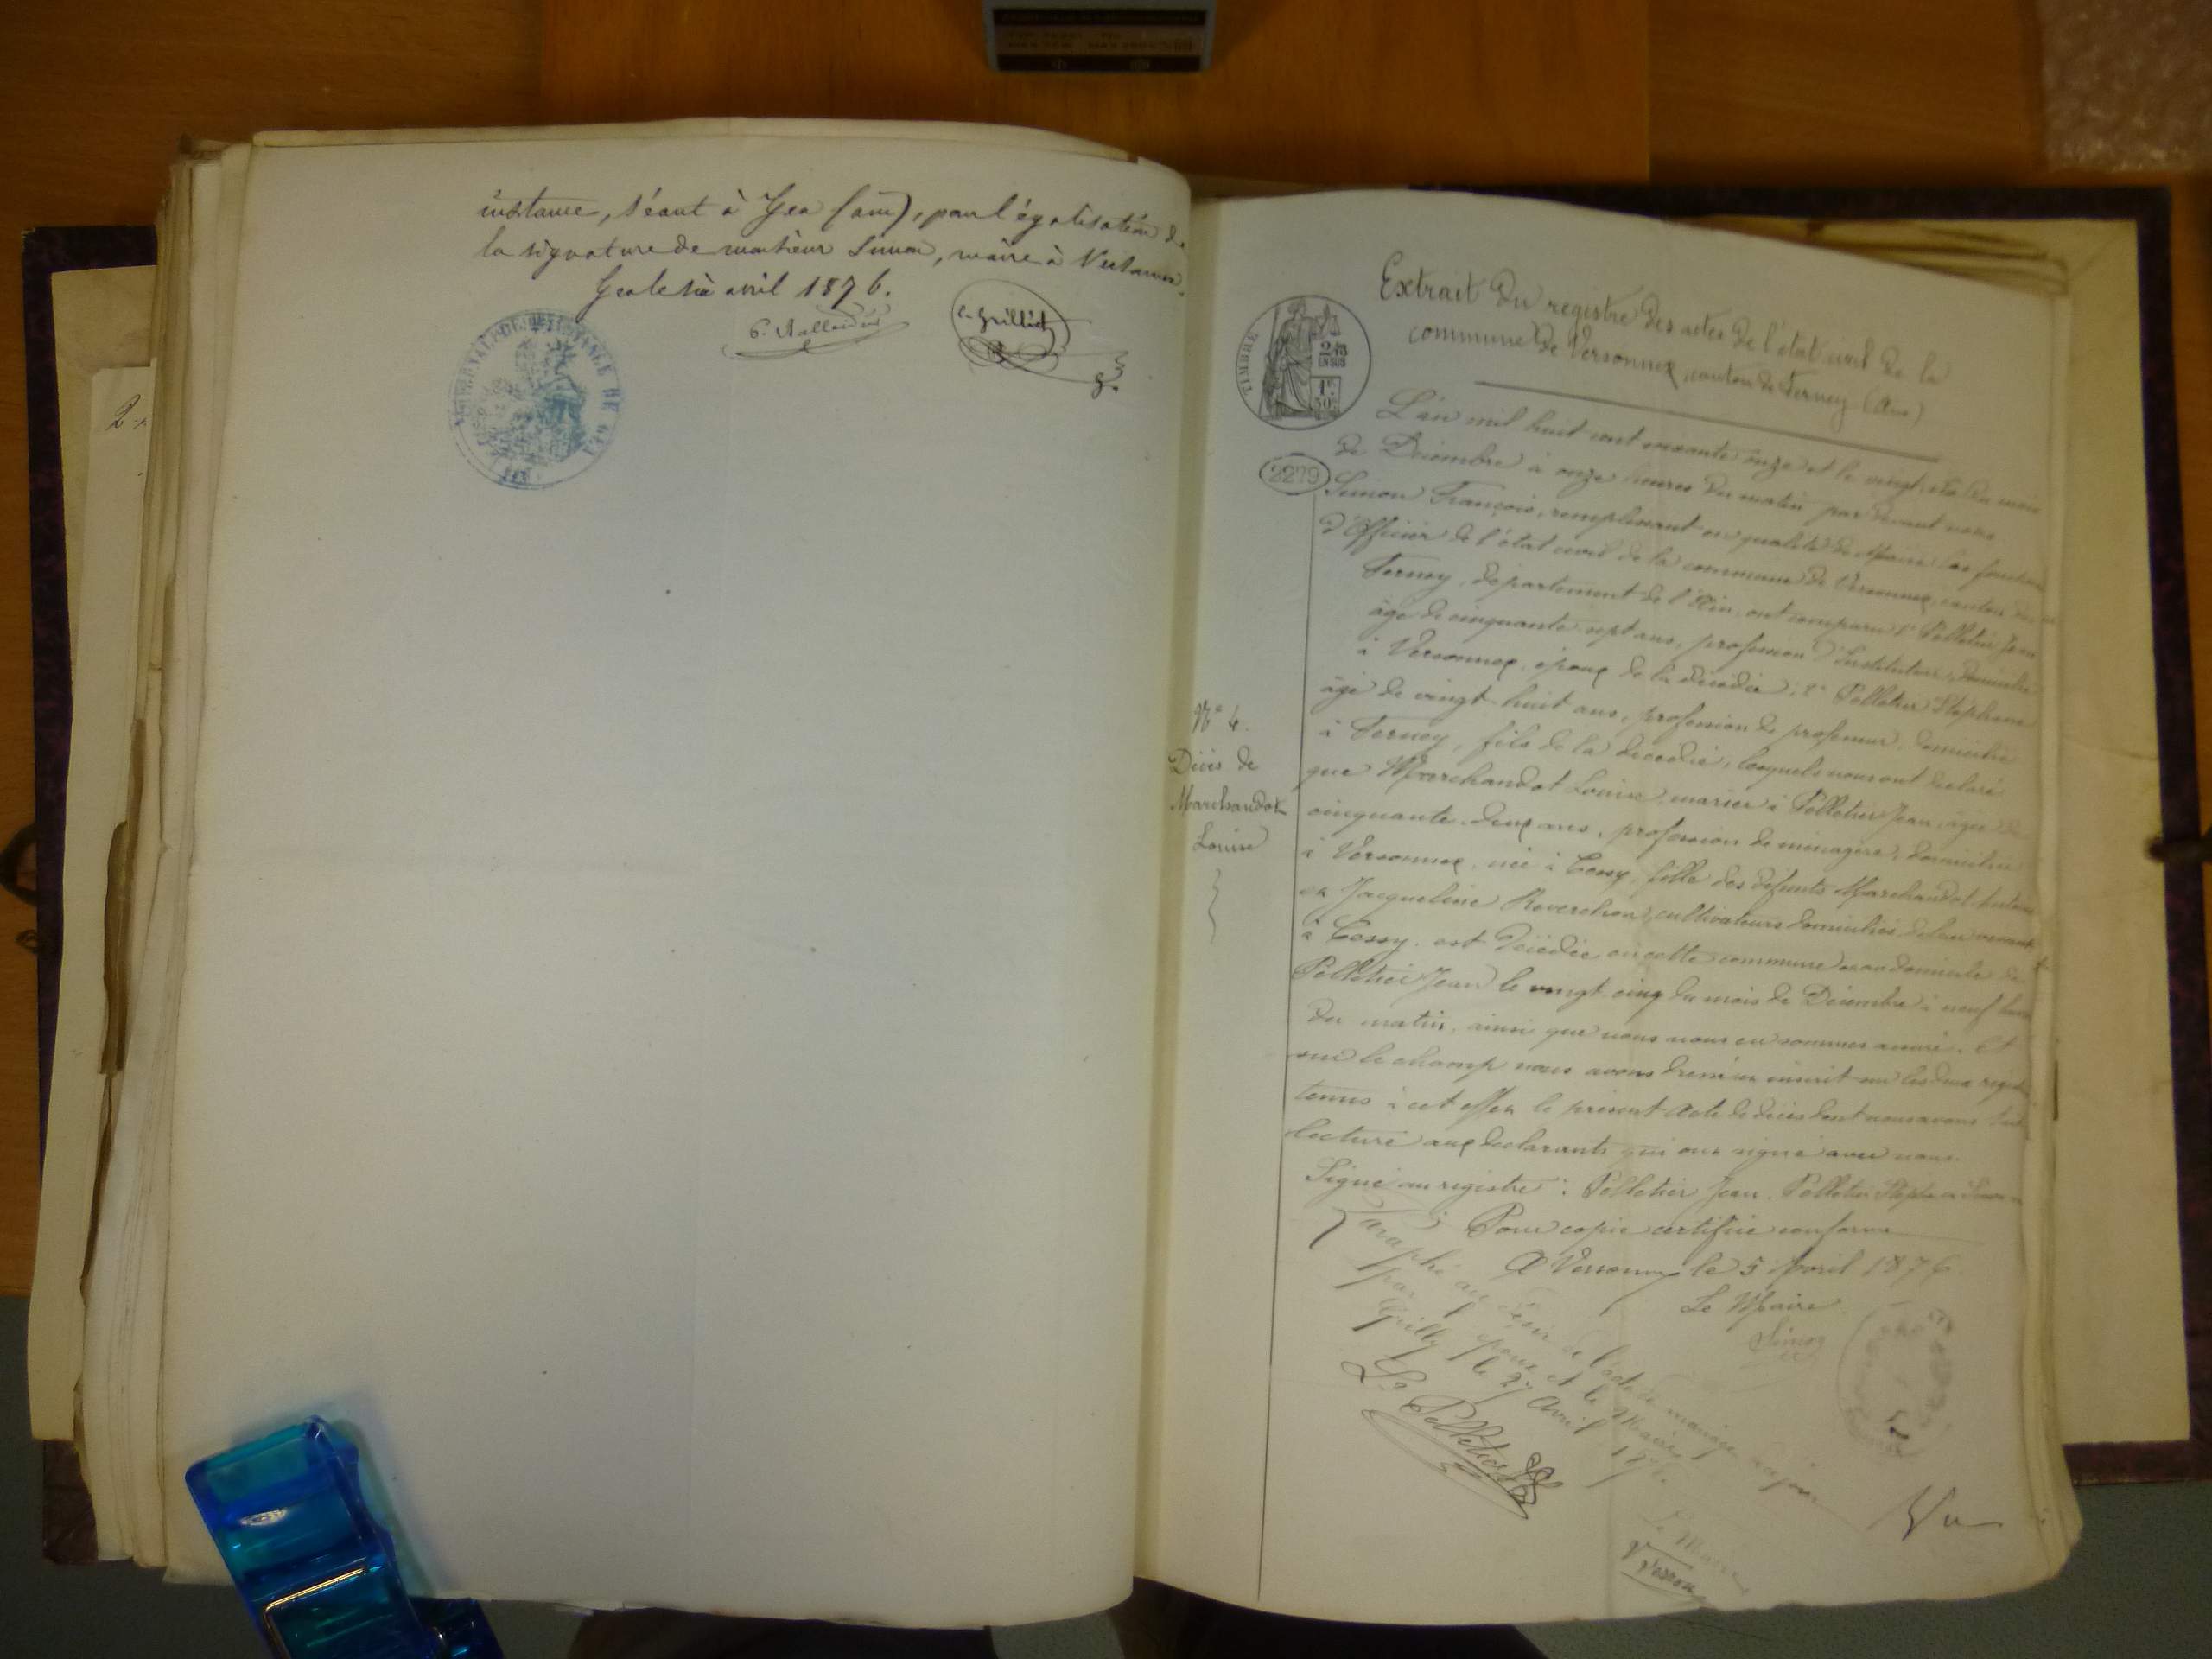 instance, séant à Gex (ain), pour légalisation de
la signature de monsieur Simon, maire à Versonnex.
Gex le six avril 1876.
TIMBRE
2279
Extrait du registre des actes de l'état civil de la
commune de Versonnex, canton de Ferney (Ain)
L'an mil huit cent soixante onze et le vingt six du mois
de Décembre à onze heures du matin par devant nous
Simon François, remplissant en qualité de Maire les fonctions
d'Officier de l'état civil de la commune de Versonnex, canton de
Ferney, département de l'Ain, ont comparu 1° Pelletier Jean
âgé de cinquante-sept ans, profession d'Instituteur, domicilié
à Versonnex, époux de la décédée; 2° Pelletier Stéphane
âgé de vingt-huit ans, profession de professeur, domicilié
à Ferney, fils de la décédée, lesquels nous ont déclaré
que Marchandot Louise, mariée à Pelletier Jean, âgée de
cinquante-deux ans, profession de ménagère, domiciliée
à Versonnex, née à Cessy, fille des défunts Marchandot
et Jacqueline Reverchon, cultivateurs domiciliés de leur vivant
à Cessy, est décédée en cette commune au domicile de
Pelletier Jean le vingt-cinq du mois de Décembre à neuf heures
du matin, ainsi que nous nous en sommes assuré. Et
sur le champ nous avons dressé et inscrit sur les deux registres
tenus à cet effet le présent acte de décès dont nous avons fait
lecture aux déclarants qui ont signé avec nous.
Signé au registre: Pelletier Jean. Pelletier Stéphane Simon
Pour copie certifiée conforme
A Versonnex le 5 Avril 1876
Le Maire
Simon
N° 4.
Décès de
Marchandot
Louise
Paraphé au désir de l'acte de mariage ce jour
par l'époux et le Maire
Grilly le 27 Avril 1876
Le Maire
Pelletier
Vu